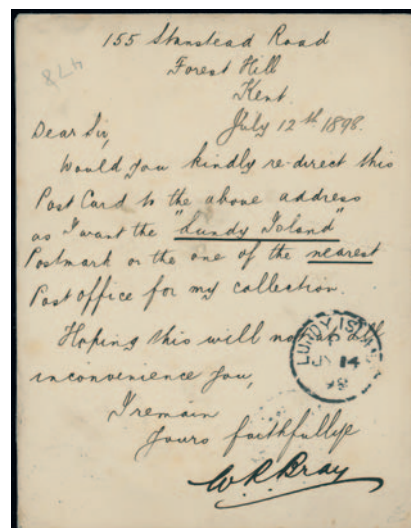 155 Stanstead Road
Forest Hill
Kent.
478
July 12th 1898.
Dear Sir,
Would you kindly re-direct this
Post Card to the above address
as I want the "Lundy Island"
Postmark or the one of the nearest
Post office for my collection.
Hoping this will not at all
inconvenience you,
I remain
Yours faithfully
W R Bray
LUNDY ISLAND
JY 14
98